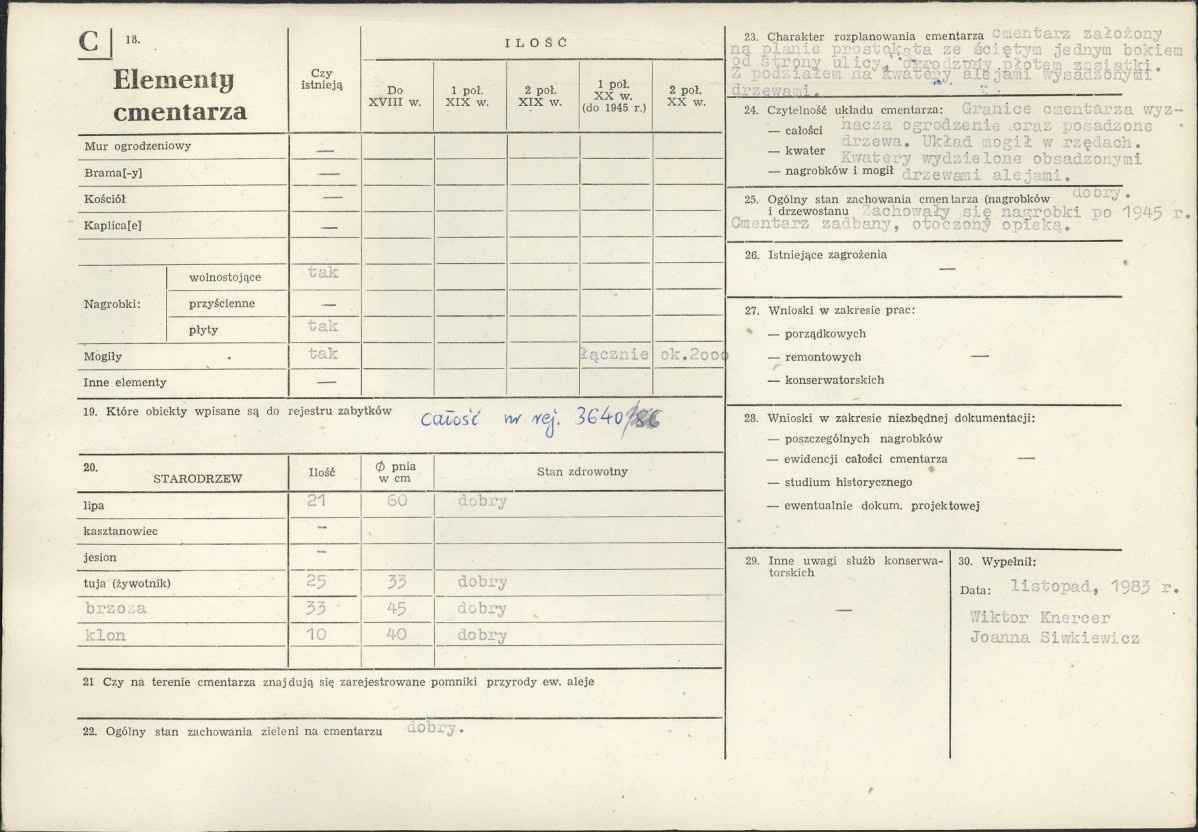 C 18.
Elementy
cmentarza
Czy
istnieją
ILOŚĆ
Do
XVIII w.
1 poł.
XIX w.
2 poł.
XIX w.
1 poł.
XX w.
(do 1945 r.)
2 poł.
XX w.
Mur ogrodzeniowy —
Brama[-y] —
Kościół —
Kaplica[e] —
Nagrobki:
wolnostojące tak
przyścienne —
płyty tak
Mogiły tak łącznie ok.2000
Inne elementy —
19. Które obiekty wpisane są do rejestru zabytków całość nr rej. 3640/86
20.
STARODRZEW
Ilość
Ø pnia
w cm
Stan zdrowotny
lipa 21 60 dobry
kasztanowiec -
jesion -
tuja (żywotnik) 25 33 dobry
brzoza 33 45 dobry
klon 10 40 dobry
21 Czy na terenie cmentarza znajdują się zarejestrowane pomniki przyrody ew. aleje
22. Ogólny stan zachowania zieleni na cmentarzu dobry.
23. Charakter rozplanowania cmentarza cmentarz założony
na planie prostokąta ze ściętym jednym bokiem
od strony ulicy, ogrodzony płotem z siatki.
Z podziałem na kwatery alejami wysadzonymi
drzewami.
24. Czytelność układu cmentarza: Granice cmentarza wyz-
— całości nacza ogrodzenie oraz posadzone
drzewa. Układ mogił w rzędach.
— kwater Kwatery wydzielone obsadzonymi
— nagrobków i mogił drzewami alejami.
25. Ogólny stan zachowania cmentarza (nagrobków dobry.
i drzewostanu Zachowały się nagrobki po 1945 r.
Cmentarz zadbany, otoczony opieką.
26. Istniejące zagrożenia
—
27. Wnioski w zakresie prac:
— porządkowych
— remontowych —
— konserwatorskich
28. Wnioski w zakresie niezbędnej dokumentacji:
— poszczególnych nagrobków
— ewidencji całości cmentarza —
— studium historycznego
— ewentualnie dokum. projektowej
29. Inne uwagi służb konserwa-
torskich
—
30. Wypełnił:
Data: listopad, 1983 r.
Wiktor Knercer
Joanna Siwkiewicz